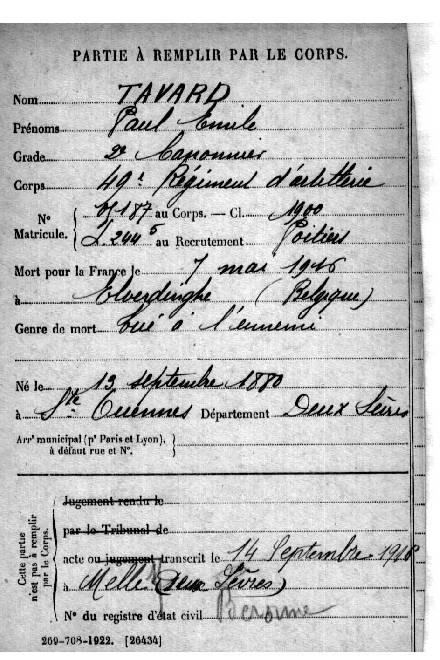 PARTIE À REMPLIR PAR LE CORPS.
Nom TAVARD
Prénoms Paul Emile
Grade 2e Canonnier
Corps 49e Régiment d'artillerie
N° Matricule. { 187 au Corps. — Cl. 1900
2445 au Recrutement Poitiers
Mort pour la France le 7 mai
à Elverdinghe (Belgique)
Genre de mort tué à l'ennemi
Né le septembre 1880
à Département Deux Sèvres
Arrt municipal (pr Paris et Lyon), à défaut rue et N°. }
Cette partie n'est pas à remplir par le Corps. {
Jugement rendu le
par le Tribunal de
acte ou jugement transcrit le 14 Septembre
à Melle (Deux Sèvres)
N° du registre d'état civil
269-708-1922. [26434]